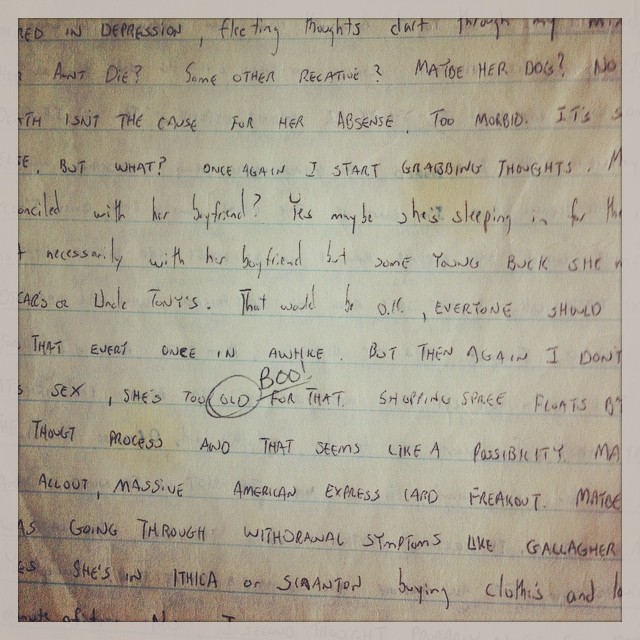 RED IN DEPRESSION, fleeting thoughts dart through my
AUNT DIE? SOME OTHER RELATIVE? MAYBE HER DOG? NO
TH ISN'T THE CAUSE FOR HER ABSENSE. TOO MORBID. IT'S S
E. BUT WHAT? ONCE AGAIN I START GRABBING THOUGHTS. M
onciled with her boyfriend? Yes maybe she's sleeping in for the
t necessarily with her boyfriend but SOME YOUNG BUCK SHE
CAR'S or Uncle TONY'S. That would be O.K., EVERYONE SHOULD
THAT EVERY ONCE IN AWHILE. BUT THEN AGAIN I DON'T
BOO!
S SEX, SHE'S TOO OLD FOR THAT. SHOPPING SPREE FLOATS BY
THOUGT PROCESS AND THAT SEEMS LIKE A POSSIBILITY. MA
ALLOUT, MASSIVE AMERICAN EXPRESS CARD FREAKOUT. MAYBE
AS GOING THROUGH WITHDRAWAL SYMPTOMS LIKE GALLAGHER
ES SHE'S IN ITHICA or SCRANTON buying clothes and lo